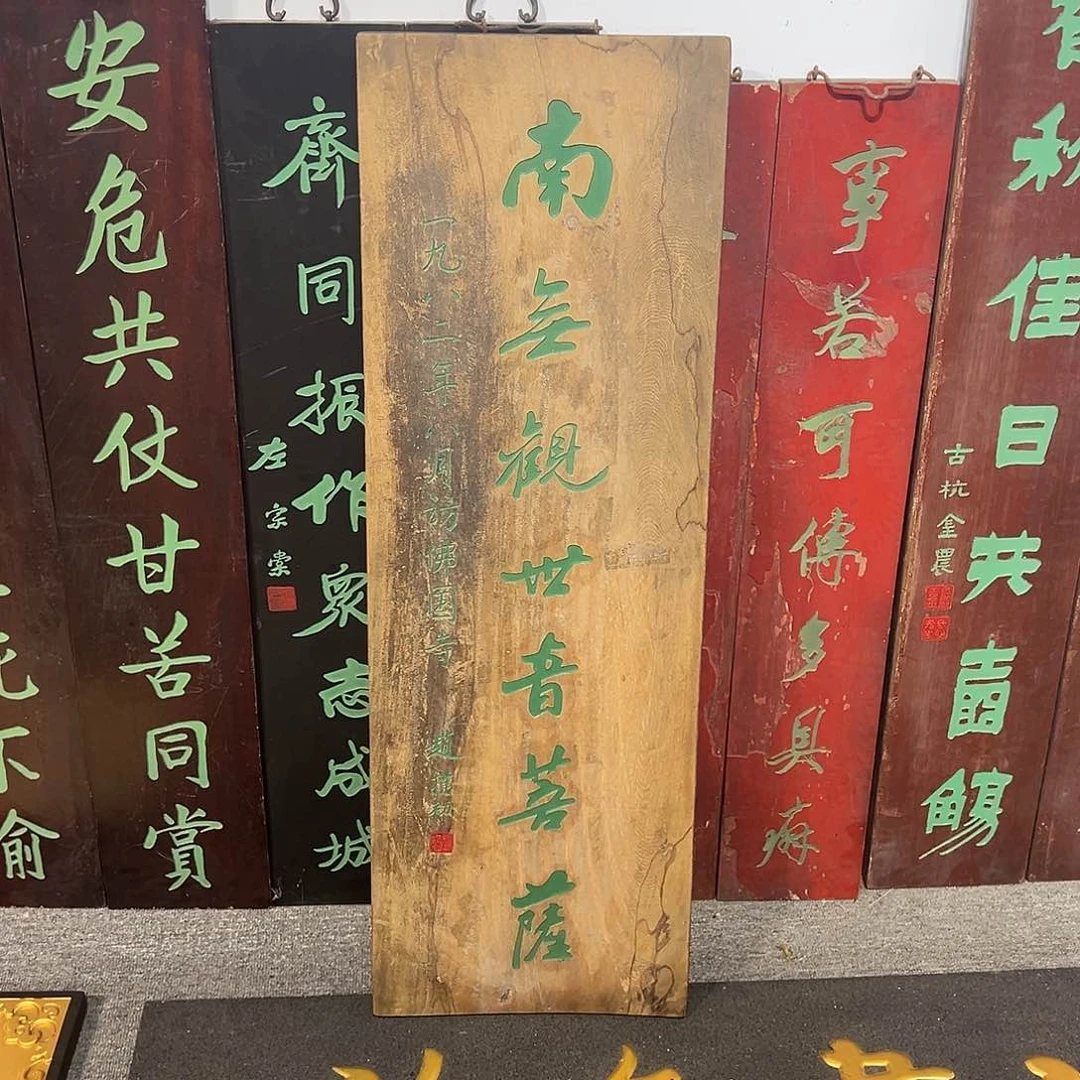 南無觀世音菩薩
一九八二年八月訪佛國寺 趙樸初
安危共仗甘苦同賞
齊同振作衆志成城
左宗棠
事若可傳多具癖
秋佳日共壺觴
古杭金農